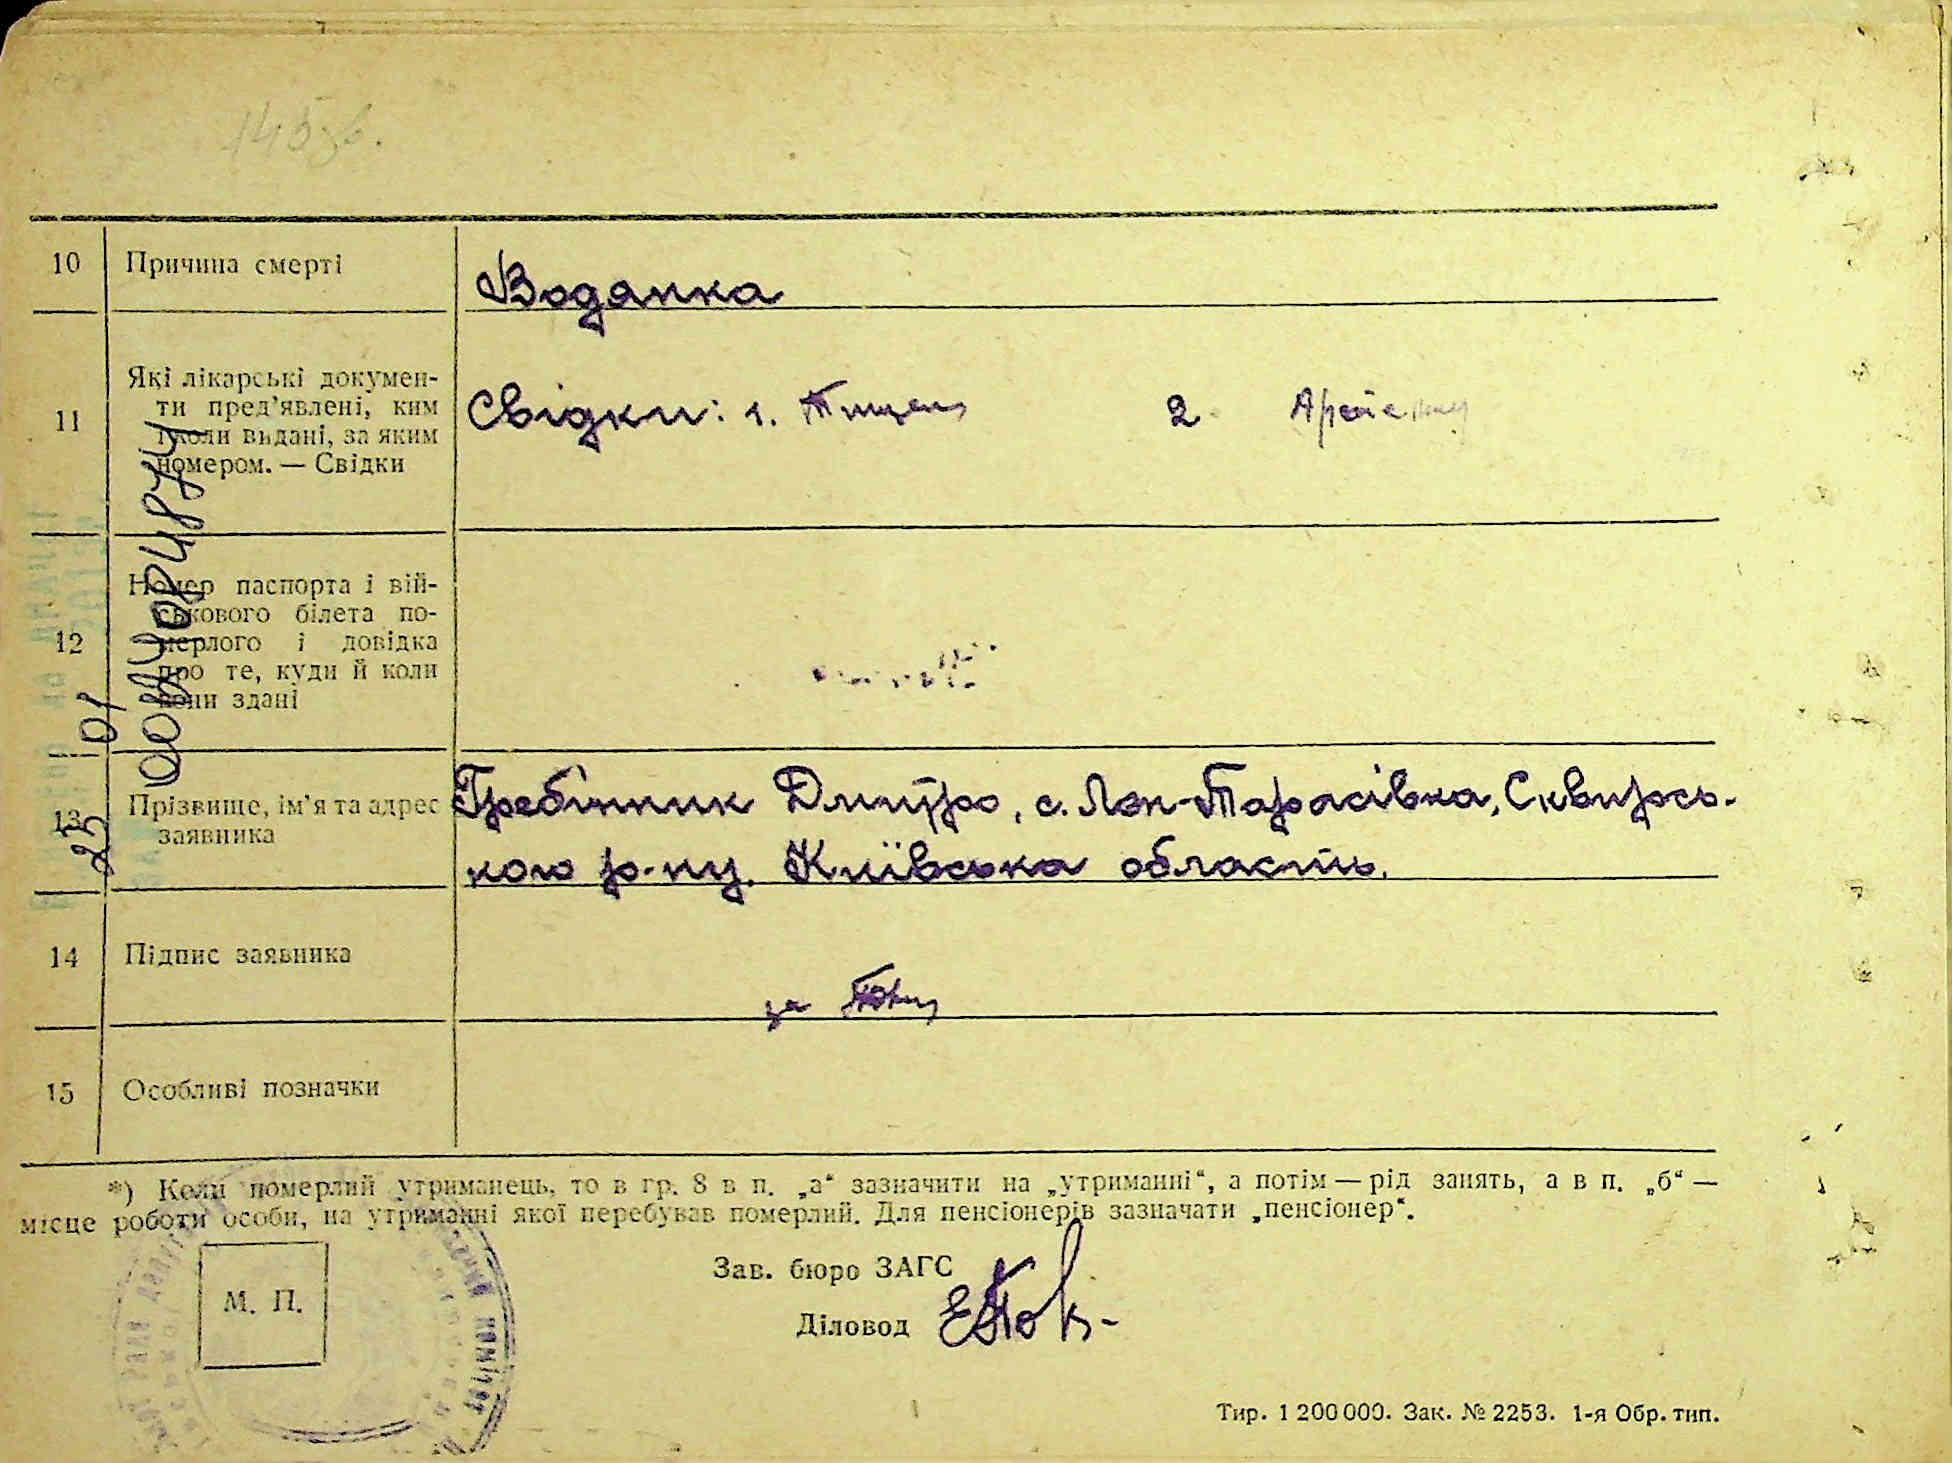 145зв.
10 Причина смерті Водянка
11 Які лікарські докумен-
ти пред'явлені, ким
і коли видані, за яким
номером. — Свідки
Свідки: 1. 2.
12 Номер паспорта і вій-
ськового білета по-
мерлого і довідка
про те, куди й коли
вони здані
13 Прізвище, ім'я та адрес
заявника
Гребінник Дмитро, с. Лоз-Тарасівка, Сквирсь-
кого р-ну. Київська область.
14 Підпис заявника
за
15 Особливі позначки
*) Коли померлий утриманець, то в гр. 8 в п. „а“ зазначити на „утриманні“, а потім — рід занять, а в п. „б“ —
місце роботи особи, на утриманні якої перебував померлий. Для пенсіонерів зазначати „пенсіонер“.
М. П.
Зав. бюро ЗАГС
Діловод
Тир. 1 200 000. Зак. № 2253. 1-я Обр. тип.